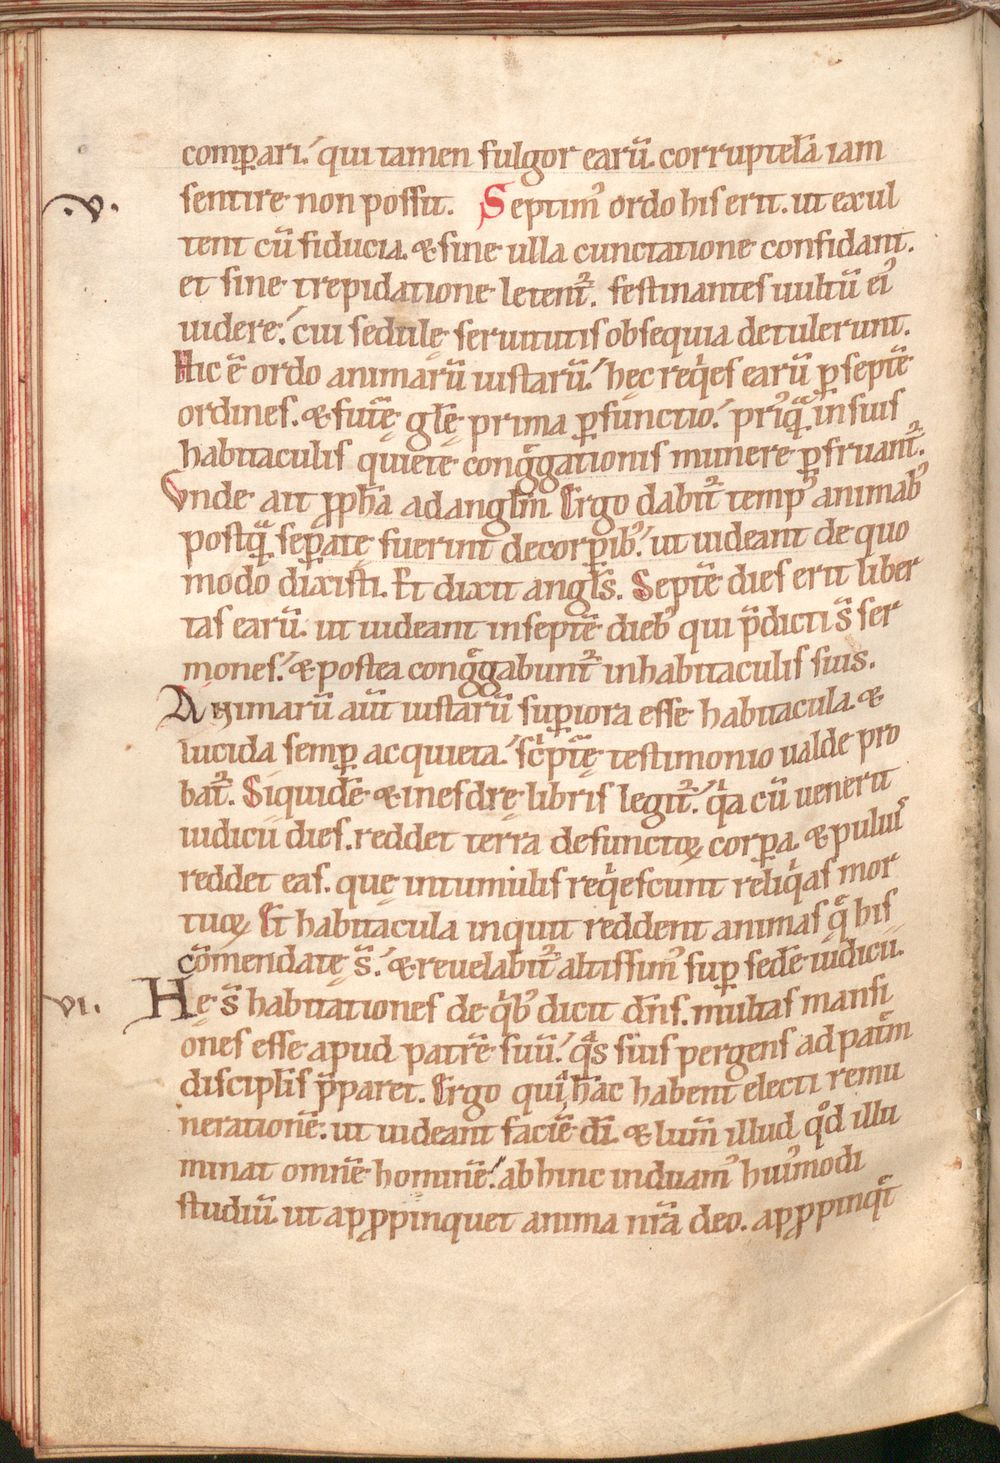 comꝑari. qui tamen fulgor earū. corruptelā iam
.v. sentire non possit. Septim᾽ ordo his erit. ut exul
tent cū fiducia. & sine ulla cunctatione confidant.
et sine trepidatione letent᷑. festinantes uultū ei᾽
uidere. cui sedulę seruitutis obsequia detulerunt.
Hic ē ordo animarū iustarū. hęc reqͥes earū ꝑ septē
ordines. & futr̄ę glę̄ prima ꝑfunctio. priꝰqͣ in suis
habitaculis quietę cong̊gationis munere ꝑfruant᷑.
Vnde ait ꝓph̄a ad angl̄m Ergo dabit᷑ temp᾽ animab᾽
postqͣ seꝑatę fuerint de corꝑib᾽. ut uideant de quo
modo dixisti. Et dixit angl̄s. Septē dies erit liber
tas earū. ut uideant in septē dieb᾽ qui p̄dicti s̄ ser
mones. & postea cong̊gabunt᷑ in habitaculis suis.
Animarū aūt iustarū suꝑiora esse habitacula. &
lucida semꝑ ac quieta. sc̄ptr̄ę testimonio ualde pro
bat᷑. Siquidē & in esdrę libris legit᷑. qͥa cū uenerit
iudicii dies. reddet terra defunctoꝝ corꝑa. & puluis
reddet eas. quę in tumulis reqͥescunt reliqͥas mor
tuoꝝ Et habitacula inquit reddent animas q̄ his
cōmendatę s̄. & reuelabit᷑ altissim᾽ suꝑ sedē iudicii.
.vi. Hę s̄ habitationes de qͥb᾽ dicit dn̄s. multas mansi
ones esse apud patrē suū. qͣs suis pergens ad patr̄m
discipl̄is p̄paret. Ergo quia hāc habent electi remu
nerationē. ut uideant faciē dī. & lum̄ illud qͦd illu
minat omnē hominē. abhinc induam᾽ hui᾽modi
studiū. ut apꝓpinquet anima nr̄a deo. apꝓpinqͥt